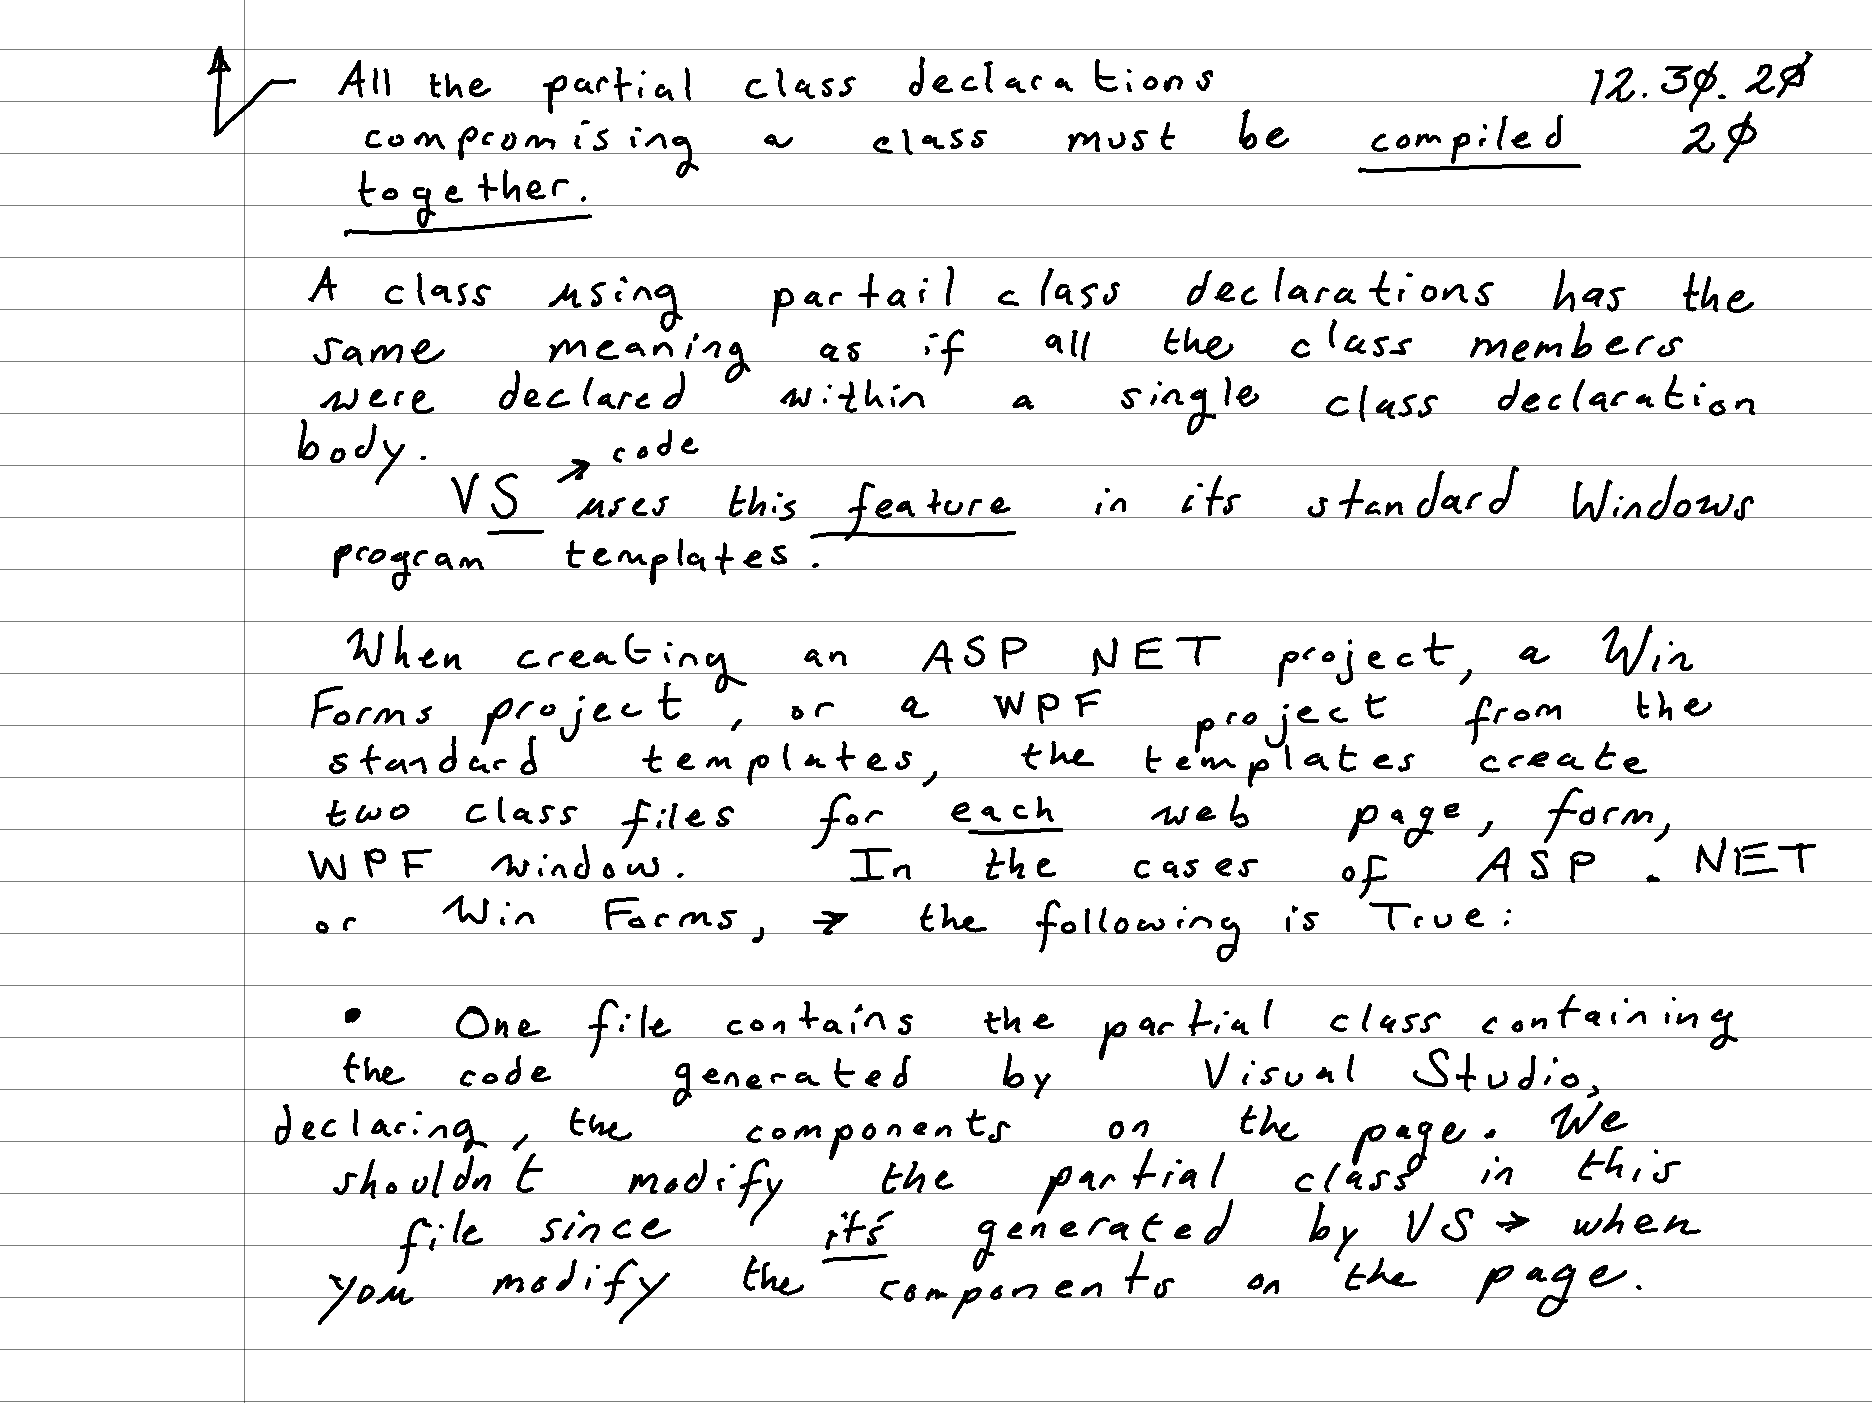 All the partial class declarations 12.30.20
compromising a class must be compiled 20
together.
A class using partail class declarations has the
same meaning as if all the class members
were declared within a single class declaration
body.
code
VS → uses this feature in its standard Windows
program templates.
When creating an ASP NET project, a Win
Forms project, or a WPF project from the
standard templates, the templates create
two class files for each web page, form,
WPF window. In the cases of ASP . NET
or Win Forms, → the following is True:
• One file contains the partial class containing
the code generated by Visual Studio,
declaring, the components on the page. We
shouldn't modify the partial class in this
file since it's generated by VS → when
you modify the components on the page.